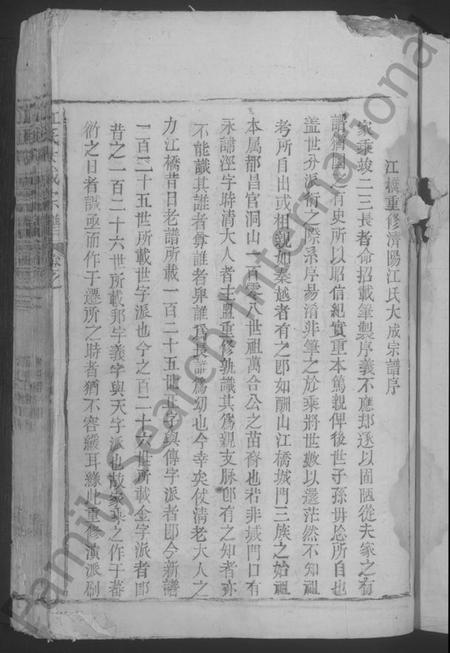 江橋重修濟陽江氏大成宗譜序
家乘竣二三長者命招載筆製序義不應却遂以固陋從夫家之有
譜猶國之有史所以昭信紀實重本篤親俾後世子孫毋忘所自也
蓋世分派衍之際系序易淆非筆之於乘將世數以還茫然不知祖
考所自出或相視如秦越者有之卽如酬山江橋城門三族之始祖
本屬都昌官洞山一百零八世祖萬合公之苗裔也若非城門口有
永譜涇字聨清大人者主盟重修孰識其為親支脉卽有之知者亦
不能識其誰者尊誰者卑誰為長誰為幼也今幸奕仗清老大人之
力江橋昔日老譜所載一百二十五世字與傳字派者卽今新譜
一百二十五世所載世字派也今之百二十六世所載金字派者卽
昔之一百二十六世所載邦字義字與天字派也故家乘之作于蕃
衍之日者誠亟而作于遷所之時者猶不容緩耳緣此重修演派刷
江氏大成宗譜 卷之
FamilySearch International